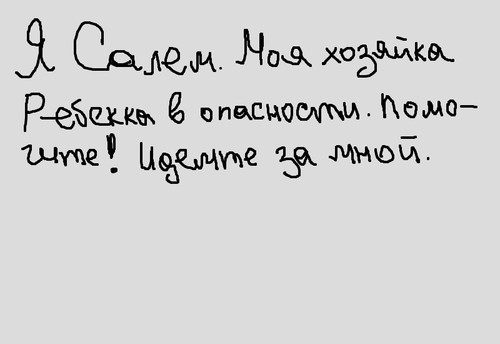 Я Салем. Моя хозяйка
Ребекка в опасности. Помо-
гите! Идемте за мной.